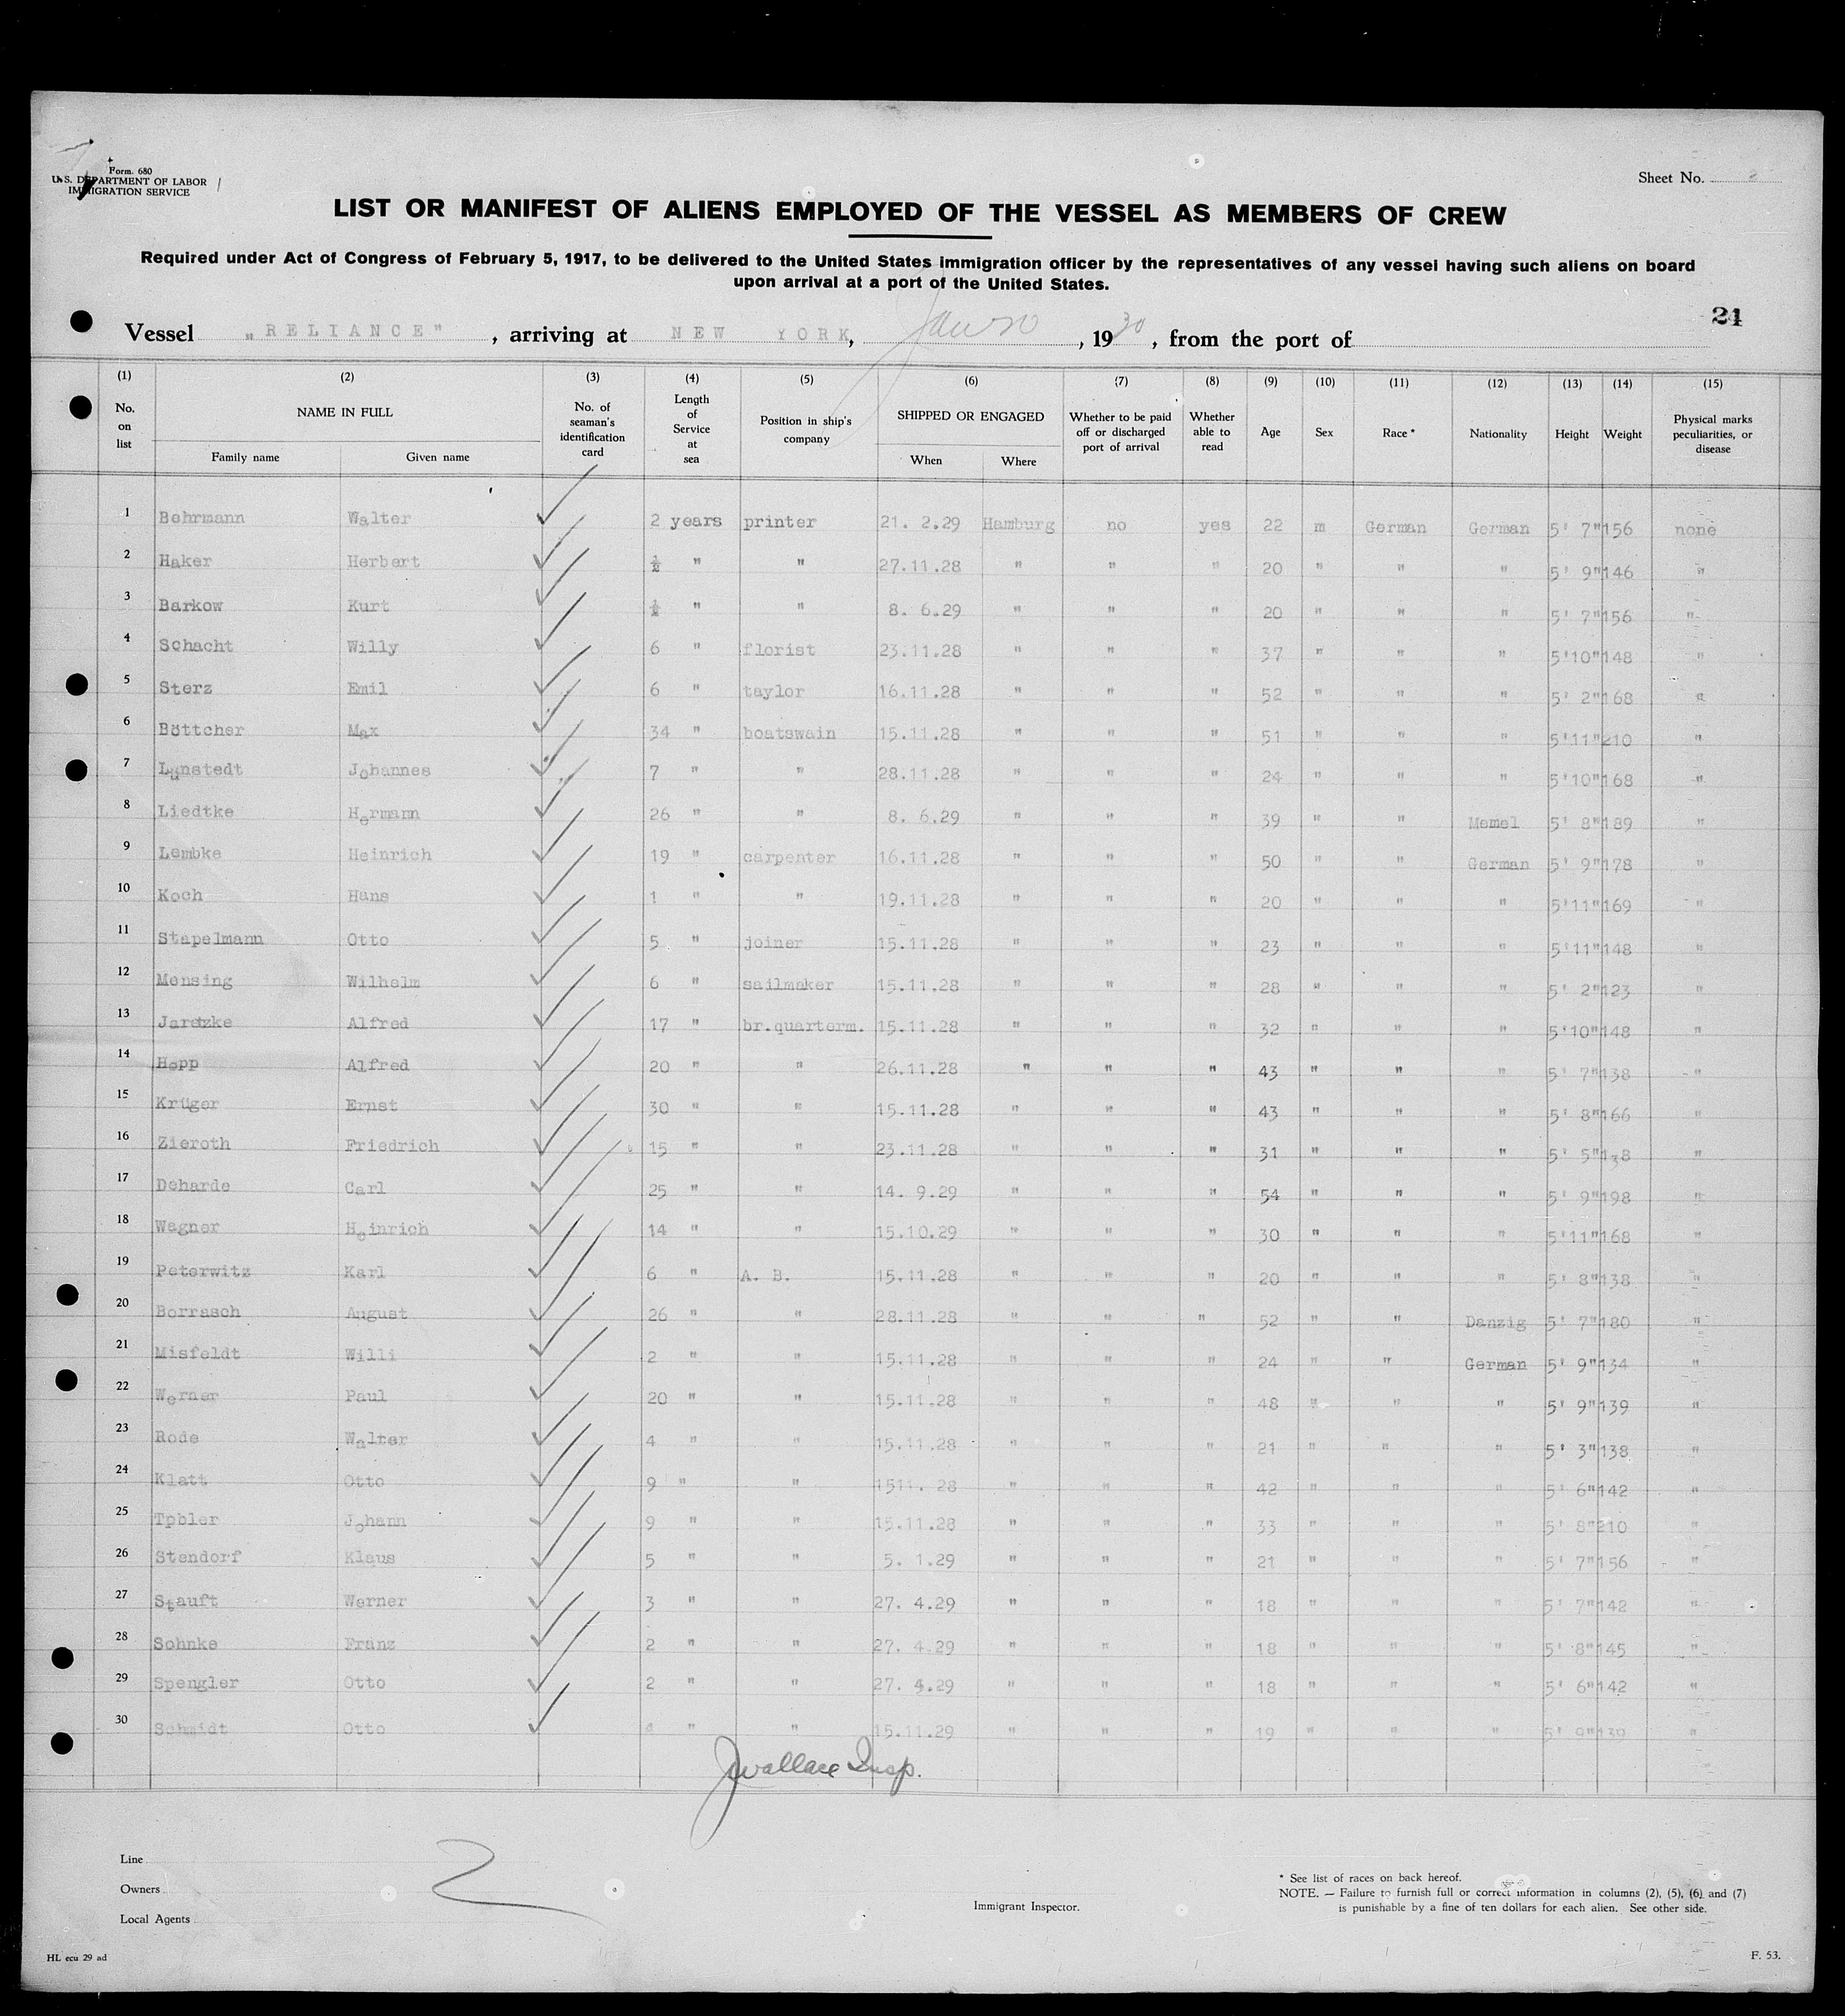 Form. 680
U.S. DEPARTMENT OF LABOR
IMMIGRATION SERVICE
Sheet No.
LIST OR MANIFEST OF ALIENS EMPLOYED OF THE VESSEL AS MEMBERS OF CREW
Required under Act of Congress of February 5, 1917, to be delivered to the United States immigration officer by the representatives of any vessel having such aliens on board
upon arrival at a port of the United States.
21
Vessel „RELIANCE" , arriving at NEW YORK, , 1930 , from the port of
(1) (2) (3) (4) (5) (6) (7) (8) (9) (10) (11) (12) (13) (14) (15)
No. on list NAME IN FULL Family name Given name No. of seaman's identification card Length of Service at sea Position in ship's company SHIPPED OR ENGAGED When Where Whether to be paid off or discharged port of arrival Whether able to read Age Sex Race * Nationality Height Weight Physical marks peculiarities, or disease
1 Behrmann Walter 2 years printer 21. 2.29 Hamburg no yes 22 m German German 5' 7" 156 none
2 Haker Herbert ½ " " 27.11.28 " " " 20 " " " 5' 9" 146 "
3 Barkow Kurt ½ " " 8. 6.29 " " " 20 " " " 5' 7" 156 "
4 Schacht Willy 6 " florist 23.11.28 " " " 37 " " " 5'10" 148 "
5 Sterz Emil 6 " taylor 16.11.28 " " " 52 " " " 5' 2" 168 "
6 Böttcher Max 34 " boatswain 15.11.28 " " " 51 " " " 5'11" 210 "
7 Lünstedt Johannes 7 " " 28.11.28 " " " 24 " " " 5'10" 168 "
8 Liedtke Hermann 26 " " 8. 6.29 " " " 39 " " Memel 5' 8" 189 "
9 Lembke Heinrich 19 " carpenter 16.11.28 " " " 50 " " German 5' 9" 178 "
10 Koch Hans 1 " " 19.11.28 " " " 20 " " " 5'11" 169 "
11 Stapelmann Otto 5 " joiner 15.11.28 " " " 23 " " " 5'11" 148 "
12 Mensing Wilhelm 6 " sailmaker 15.11.28 " " " 28 " " " 5' 2" 123 "
13 Jaretzke Alfred 17 " br.quarterm. 15.11.28 " " " 32 " " " 5'10" 148 "
14 Hopp Alfred 20 " " 26.11.28 " " " 43 " " " 5' 7" 138 "
15 Krüger Ernst 30 " " 15.11.28 " " " 43 " " " 5' 8" 166 "
16 Zieroth Friedrich 15 " " 23.11.28 " " " 31 " " " 5' 5" 138 "
17 Deharde Carl 25 " " 14. 9.29 " " " 54 " " " 5' 9" 198 "
18 Wagner Heinrich 14 " " 15.10.29 " " " 30 " " " 5'11" 168 "
19 Peterwitz Karl 6 " A. B. 15.11.28 " " " 20 " " " 5' 8" 138 "
20 Borrasch August 26 " " 28.11.28 " " " 52 " " Danzig 5' 7" 180 "
21 Misfeldt Willi 2 " " 15.11.28 " " " 24 " " German 5' 9" 134 "
22 Werner Paul 20 " " 15.11.28 " " " 48 " " " 5' 9" 139 "
23 Rode Walter 4 " " 15.11.28 " " " 21 " " " 5' 3" 138 "
24 Klatt Otto 9 " " 1511. 28 " " " 42 " " " 5' 6" 142 "
25 Tpbler Johann 9 " " 15.11.28 " " " 33 " " " 5' 8" 210 "
26 Stendorf Klaus 5 " " 5. 1.29 " " " 21 " " " 5' 7" 156 "
27 Stauft Werner 3 " " 27. 4.29 " " " 18 " " " 5' 7" 142 "
28 Sohnke Franz 2 " " 27. 4.29 " " " 18 " " " 5' 8" 145 "
29 Spengler Otto 2 " " 27. 4.29 " " " 18 " " " 5' 6" 142 "
30 Schmidt Otto " " 15.11.29 " " " 19 " " " 5' 9" 139 "
JWallace Insp.
Line
Owners
Local Agents
2
Immigrant Inspector.
* See list of races on back hereof.
NOTE. — Failure to furnish full or correct information in columns (2), (5), (6) and (7)
is punishable by a fine of ten dollars for each alien. See other side.
HL ecu 29 ad
F. 53.